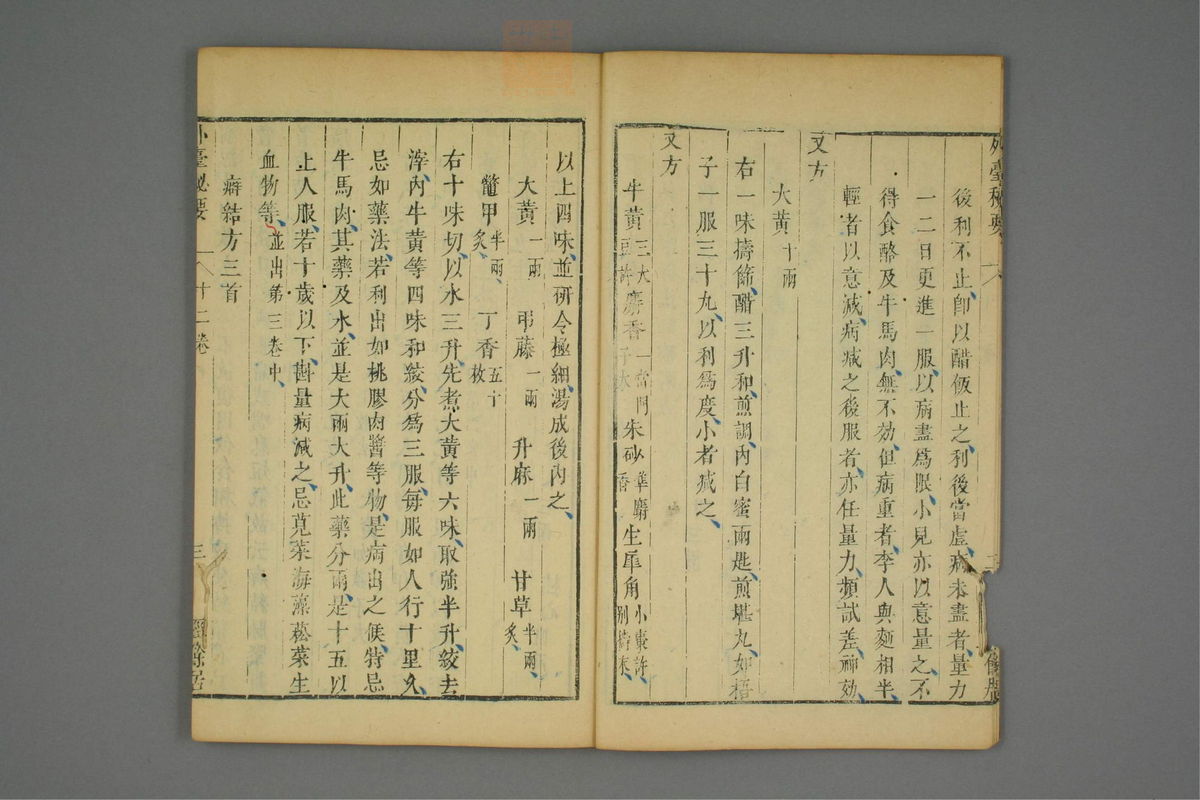 外臺秘要
後利不止即以醋飯止之利後當虛病未盡者量力
一二日更進一服以病盡爲限小兒亦以意量之不
得食酪及牛馬肉無不効但病重者李人與麵相半
輕者以意減病減之後服者亦任量力頻試差神効
又方
大黃十兩
右一味擣篩醋三升和煎調內白蜜兩匙煎堪丸如梧
子一服三十丸以利爲度小者減之
又方
牛黃三大豆許 麝香一當門子大 朱砂準麝香 生犀角小棗許別擣末
以上四味並研令極細湯成後內之
大黃一兩 弔藤一兩 升麻一兩 甘草半兩炙
鼈甲半兩炙 丁香五十枚
右十味切以水三升先煮大黃等六味取強半升絞去
滓內牛黃等四味和絞分爲三服每服如人行十里久
忌如藥法若利出如桃膠肉醬等物是病出之候特忌
牛馬肉其藥及水並是大兩大升此藥分兩是十五以
上人服若十歲以下斟量病減之忌莧菜海藻菘菜生
血物等並出第三卷中
癖結方三首
外臺秘要 十二卷 三 經餘居